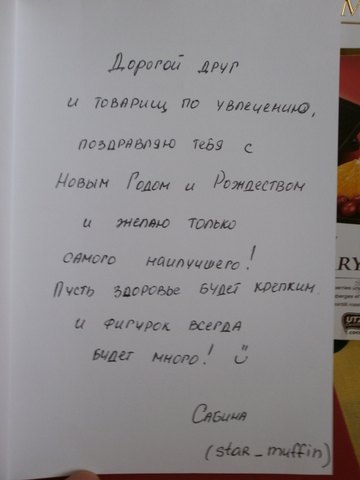 Дорогой друг
и товарищ по увлечению,
поздравляю тебя с
Новым Годом и Рождеством
и желаю только
самого наилучшего!
Пусть здоровье будет крепким
и фигурок всегда
будет много!
Сабина
(star_muffin)
M
RY
UTZ